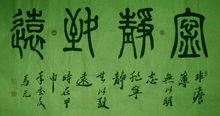 寧靜致遠
非澹
薄
無以明
志
非寧
靜
無以致
遠
時在甲
申